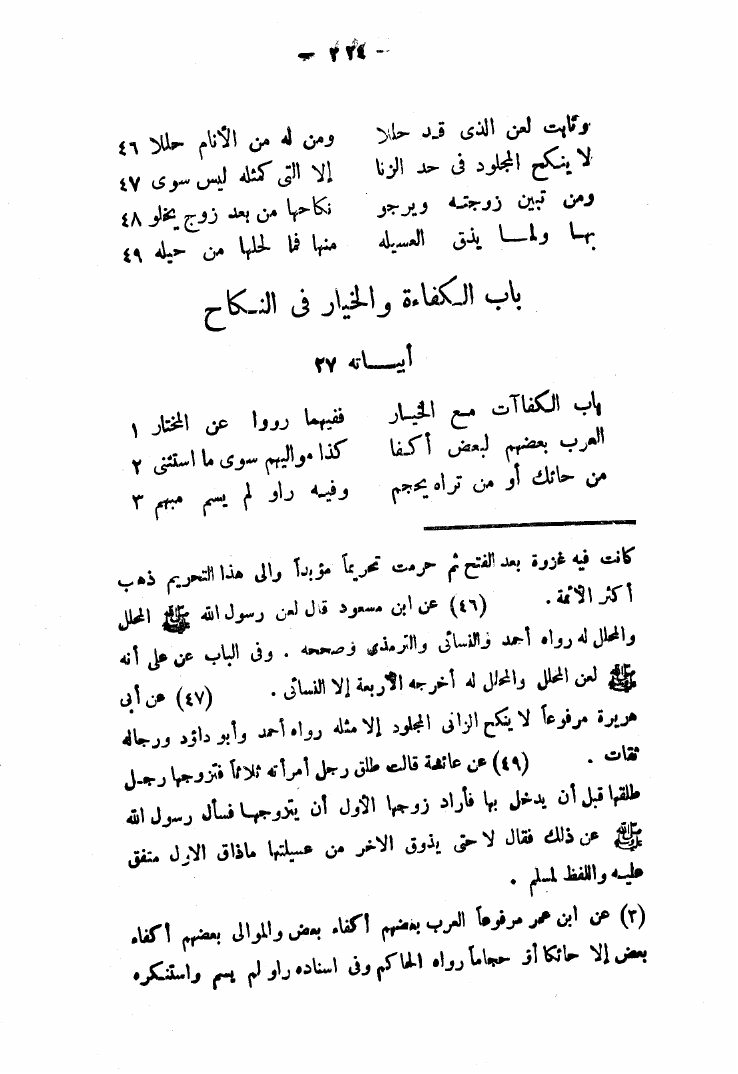 - ٢٢٤ -
وثابت لعن الذى قد حللا ومن له من الأنام حللا ٤٦
لا ينكح المجلود فى حد الزنا إلا التى كمثله ليس سوى ٤٧
ومن تبين زوجته ويرجو نكاحها من بعد زوج يخلو ٤٨
بها ولمـا يذق العسيله منها فما لحلها من حيله ٤٩
باب الكفاءة والخيار فى النكاح
أبيـــاته ٢٧
باب الكفاآت مع الخيار ففيهما رووا عن المختار ١
العرب بعضهم لبعض أكفا كذا مواليهم سوى ما استثنى ٢
من حائك أو من تراه يحجم وفيه راو لم يسم مبهم ٣
كانت فيه غزوة بعد الفتح ثم حرمت تحريماً مؤبداً والى هذا التحريم ذهب
أكثر الأئمة . (٤٦) عن ابن مسعود قال لعن رسول الله ﷺ المحلل
والمحلل له رواه أحمد والنسائى والترمذى وصححه . وفى الباب عن على أنه
ﷺ لعن المحلل والمحلل له أخرجه الأربعة إلا النسائى . (٤٧) عن أبى
هريرة مرفوعاً لا ينكح الزانى المجلود إلا مثله رواه أحمد وأبو داؤد ورجاله
ثقات . (٤٩) عن عائشة قالت طلق رجل أمرأته ثلاثاً فتزوجها رجل
طلقها قبل أن يدخل بها فأراد زوجها الأول أن يتزوجها فسأل رسول الله
ﷺ عن ذلك فقال لا حتى يذوق الاخر من عسيلتها ماذاق الاول متفق
عليه واللفظ لمسلم .
(٣) عن ابن عمر مرفوعاً العرب بعضهم أكفاء بعض والموالى بعضهم أكفاء
بعض إلا حائكا أو حجاماً رواه الحاكم وفى اسناده راو لم يسم واستنكره